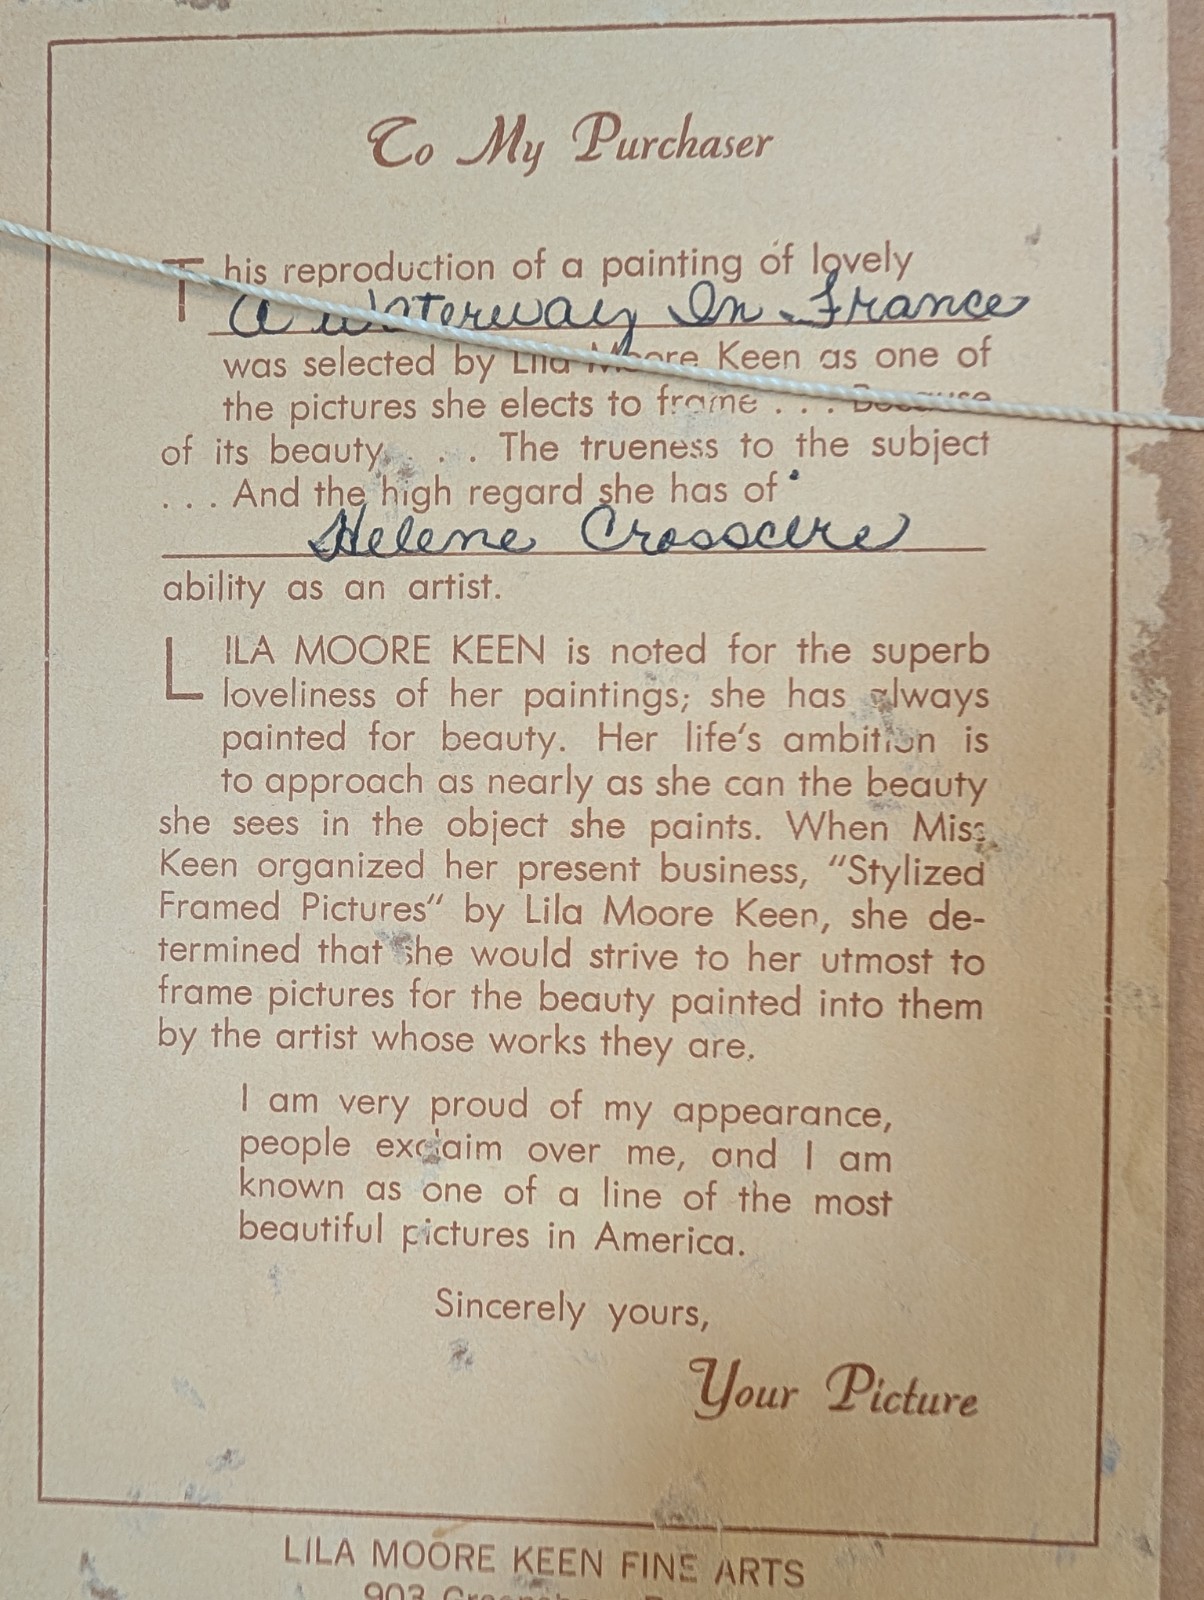 To My Purchaser
This reproduction of a painting of lovely
A Waterway In France
was selected by Lila Moore Keen as one of
the pictures she elects to frame . . . Because
of its beauty . . . The trueness to the subject
. . . And the high regard she has of
Helene
ability as an artist.
LILA MOORE KEEN is noted for the superb
loveliness of her paintings; she has always
painted for beauty. Her life's ambition is
to approach as nearly as she can the beauty
she sees in the object she paints. When Miss
Keen organized her present business, "Stylized
Framed Pictures" by Lila Moore Keen, she de-
termined that she would strive to her utmost to
frame pictures for the beauty painted into them
by the artist whose works they are.
I am very proud of my appearance,
people exclaim over me, and I am
known as one of a line of the most
beautiful pictures in America.
Sincerely yours,
Your Picture
LILA MOORE KEEN FINE ARTS
903